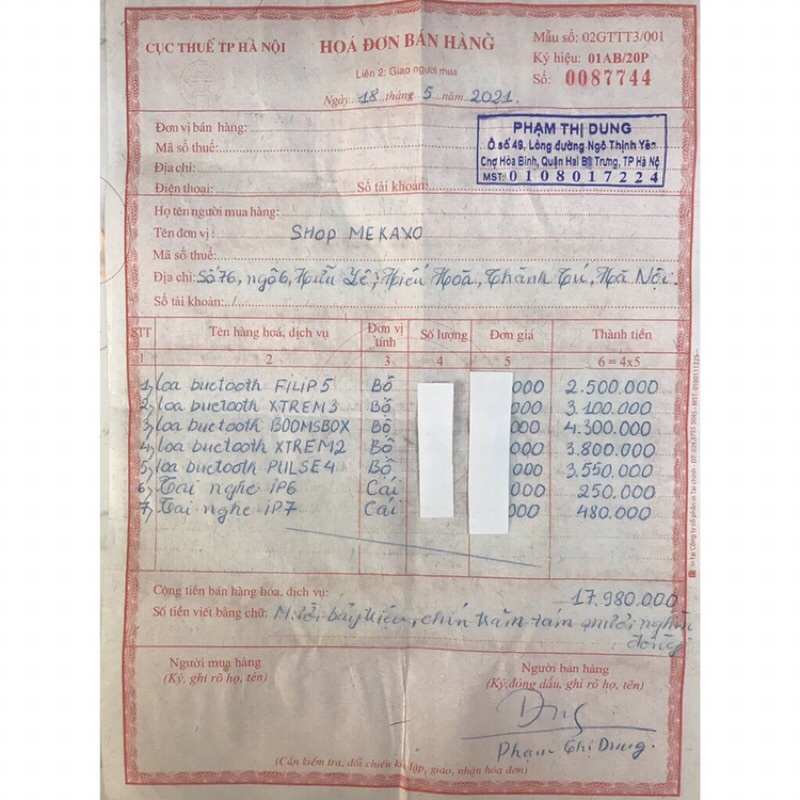 CỤC THUẾ TP HÀ NỘI
HOÁ ĐƠN BÁN HÀNG
Liên 2: Giao người mua
Ngày 18 tháng 5 năm 2021.
Mẫu số: 02GTTT3/001
Ký hiệu: 01AB/20P
Số: 0087744
Đơn vị bán hàng:
Mã số thuế:
Địa chỉ:
Điện thoại: Số tài khoản:
PHẠM THỊ DUNG
Ô số 49, Lòng đường Ngõ Thịnh Yên
Chợ Hòa Bình, Quận Hai Bà Trưng, TP Hà Nộ
MST: 0108017224
Họ tên người mua hàng:
Tên đơn vị: SHOP MEKAXO
Mã số thuế:
Địa chỉ: Số 76, ngõ 6, Hữu Lê, Hiếu Hoà, Thành Tú, Hà Nội.
Số tài khoản: /
STT Tên hàng hoá, dịch vụ Đơn vị tính Số lượng Đơn giá Thành tiền
1 2 3 4 5 6 = 4x5
1, loa buctooth FiLiP 5 Bộ 000 2.500.000
2, loa buctooth XTREM 3 Bộ 000 3.100.000
3, loa buctooth BOOMSBOX Bộ 000 4.300.000
4, loa buctooth XTREM 2 Bộ 000 3.800.000
5, loa buctooth PULSE 4 Bộ 000 3.550.000
6, Tai nghe iP6 Cái 000 250.000
7, Tai nghe iP7 Cái 000 480.000
Cộng tiền bán hàng hóa, dịch vụ: 17.980.000
Số tiền viết bằng chữ: Mười bảy triệu, chín trăm tám mươi nghìn
đồng
Người mua hàng
(Ký, ghi rõ họ, tên)
Người bán hàng
(Ký, đóng dấu, ghi rõ họ, tên)
Dung
Phạm Thị Dung.
(Cần kiểm tra, đối chiếu khi lập, giao, nhận hóa đơn)